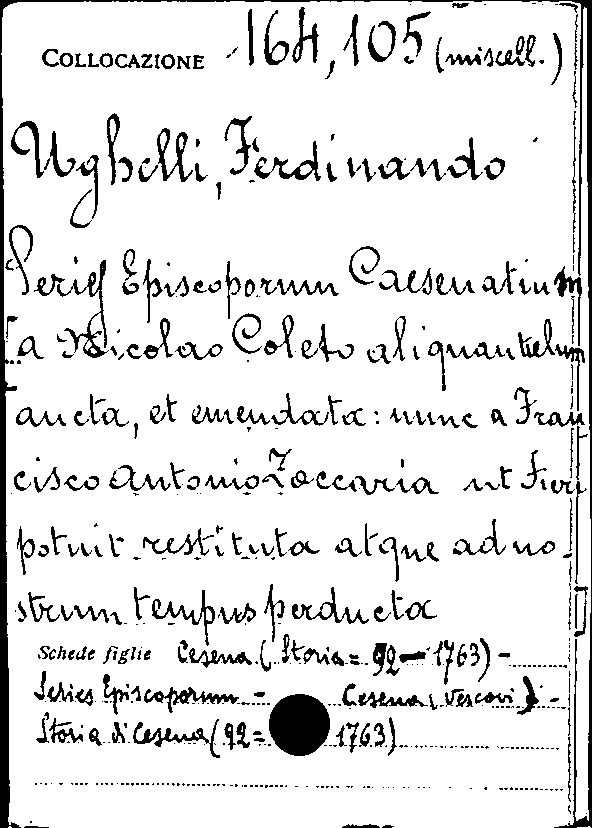 COLLOCAZIONE 164,105 (miscell.)
Ughelli, Ferdinando
Series Episcoporum Caesenatium
a Nicolao Coleto aliquantulum
aucta, et emendata: nunc a Fran
cisco Antonio Zaccaria ut Fieri
potuit restituta atque ad no-
strum tempus perducta
Schede figlie Cesena (Storia = 92 - 1763) -
Series Episcoporum - Cesena (Vescovi) -
Storia di Cesena (92 = 1763)